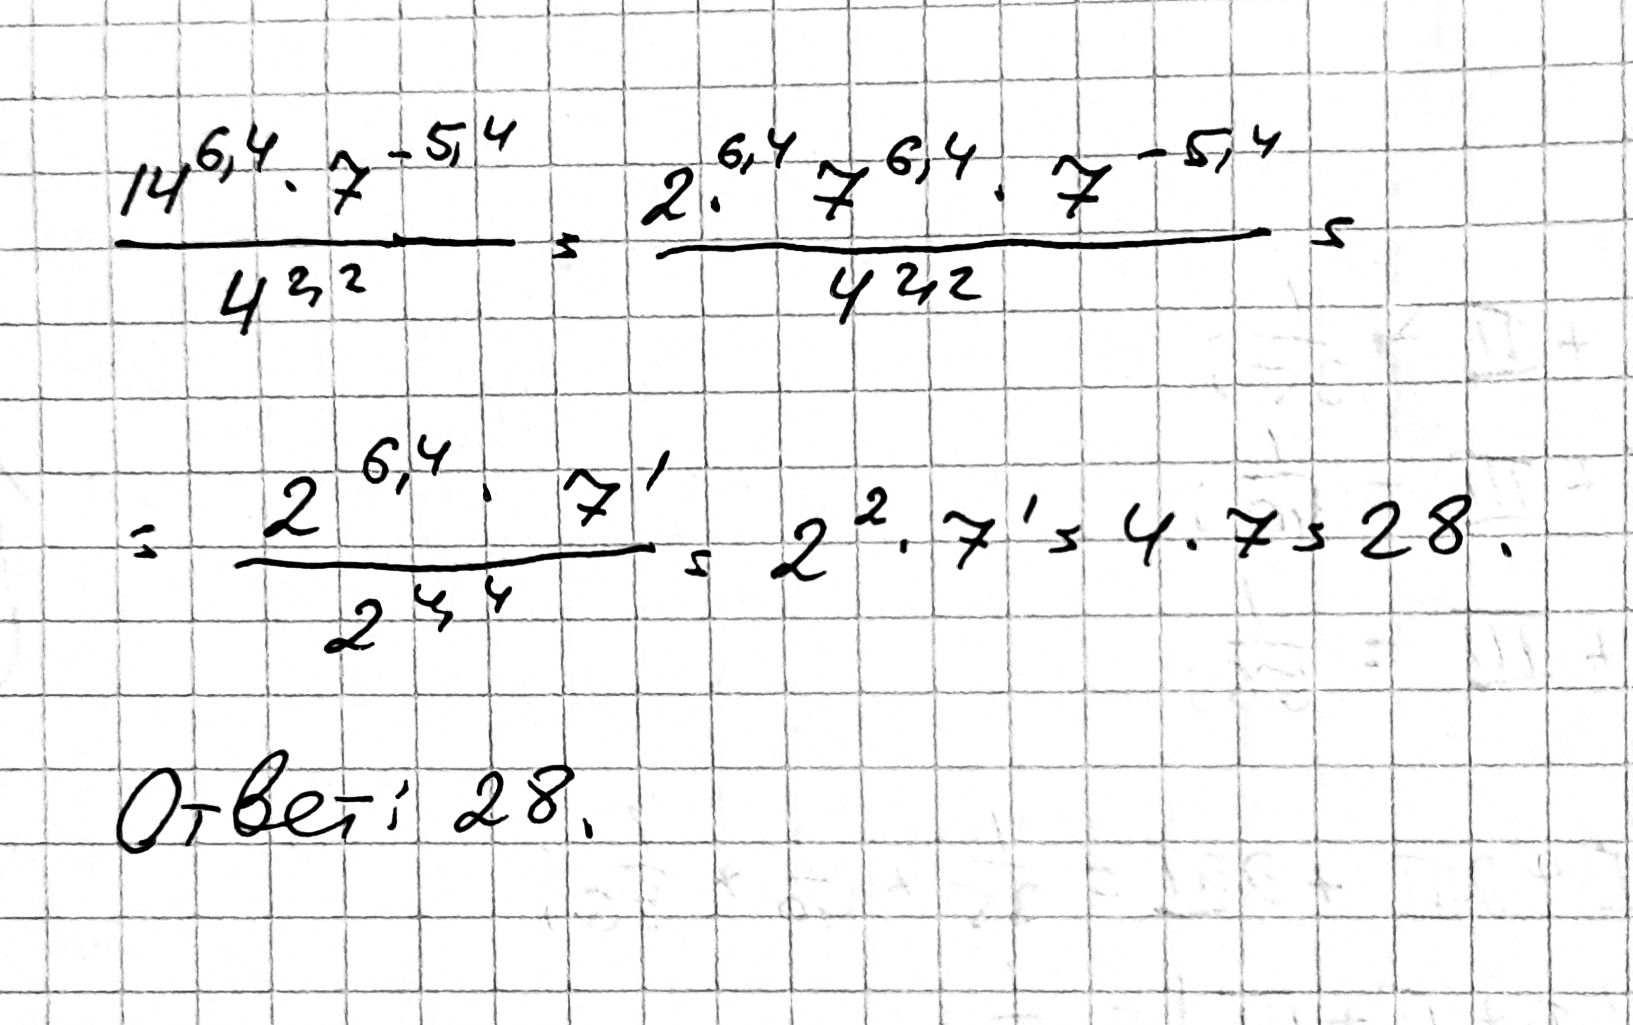 14^{6,4} · 7^{-5,4} / 4^{2,2} = 2^{6,4} · 7^{6,4} · 7^{-5,4} / 4^{2,2} =
= 2^{6,4} · 7^1 / 2^{4,4} = 2^2 · 7^1 = 4 · 7 = 28.
Ответ: 28.